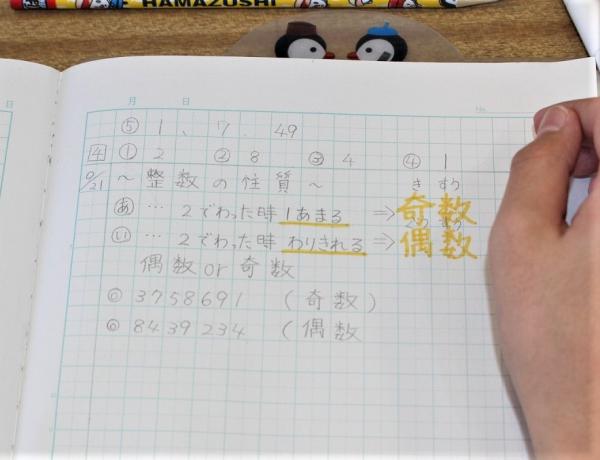 HAMAZUSHI
月 日 No.
⑤ 1、7、49
4 ① 2 ② 8 ③ 4 ④ 1
9/21 ~整数の住質~ きすう
あ … 2でわった時1あまる ⇒奇数
い … 2でわった時わりきれる ⇒偶数
偶数or奇数
◎ 3758691 (奇数)
◎ 8439234 (偶数